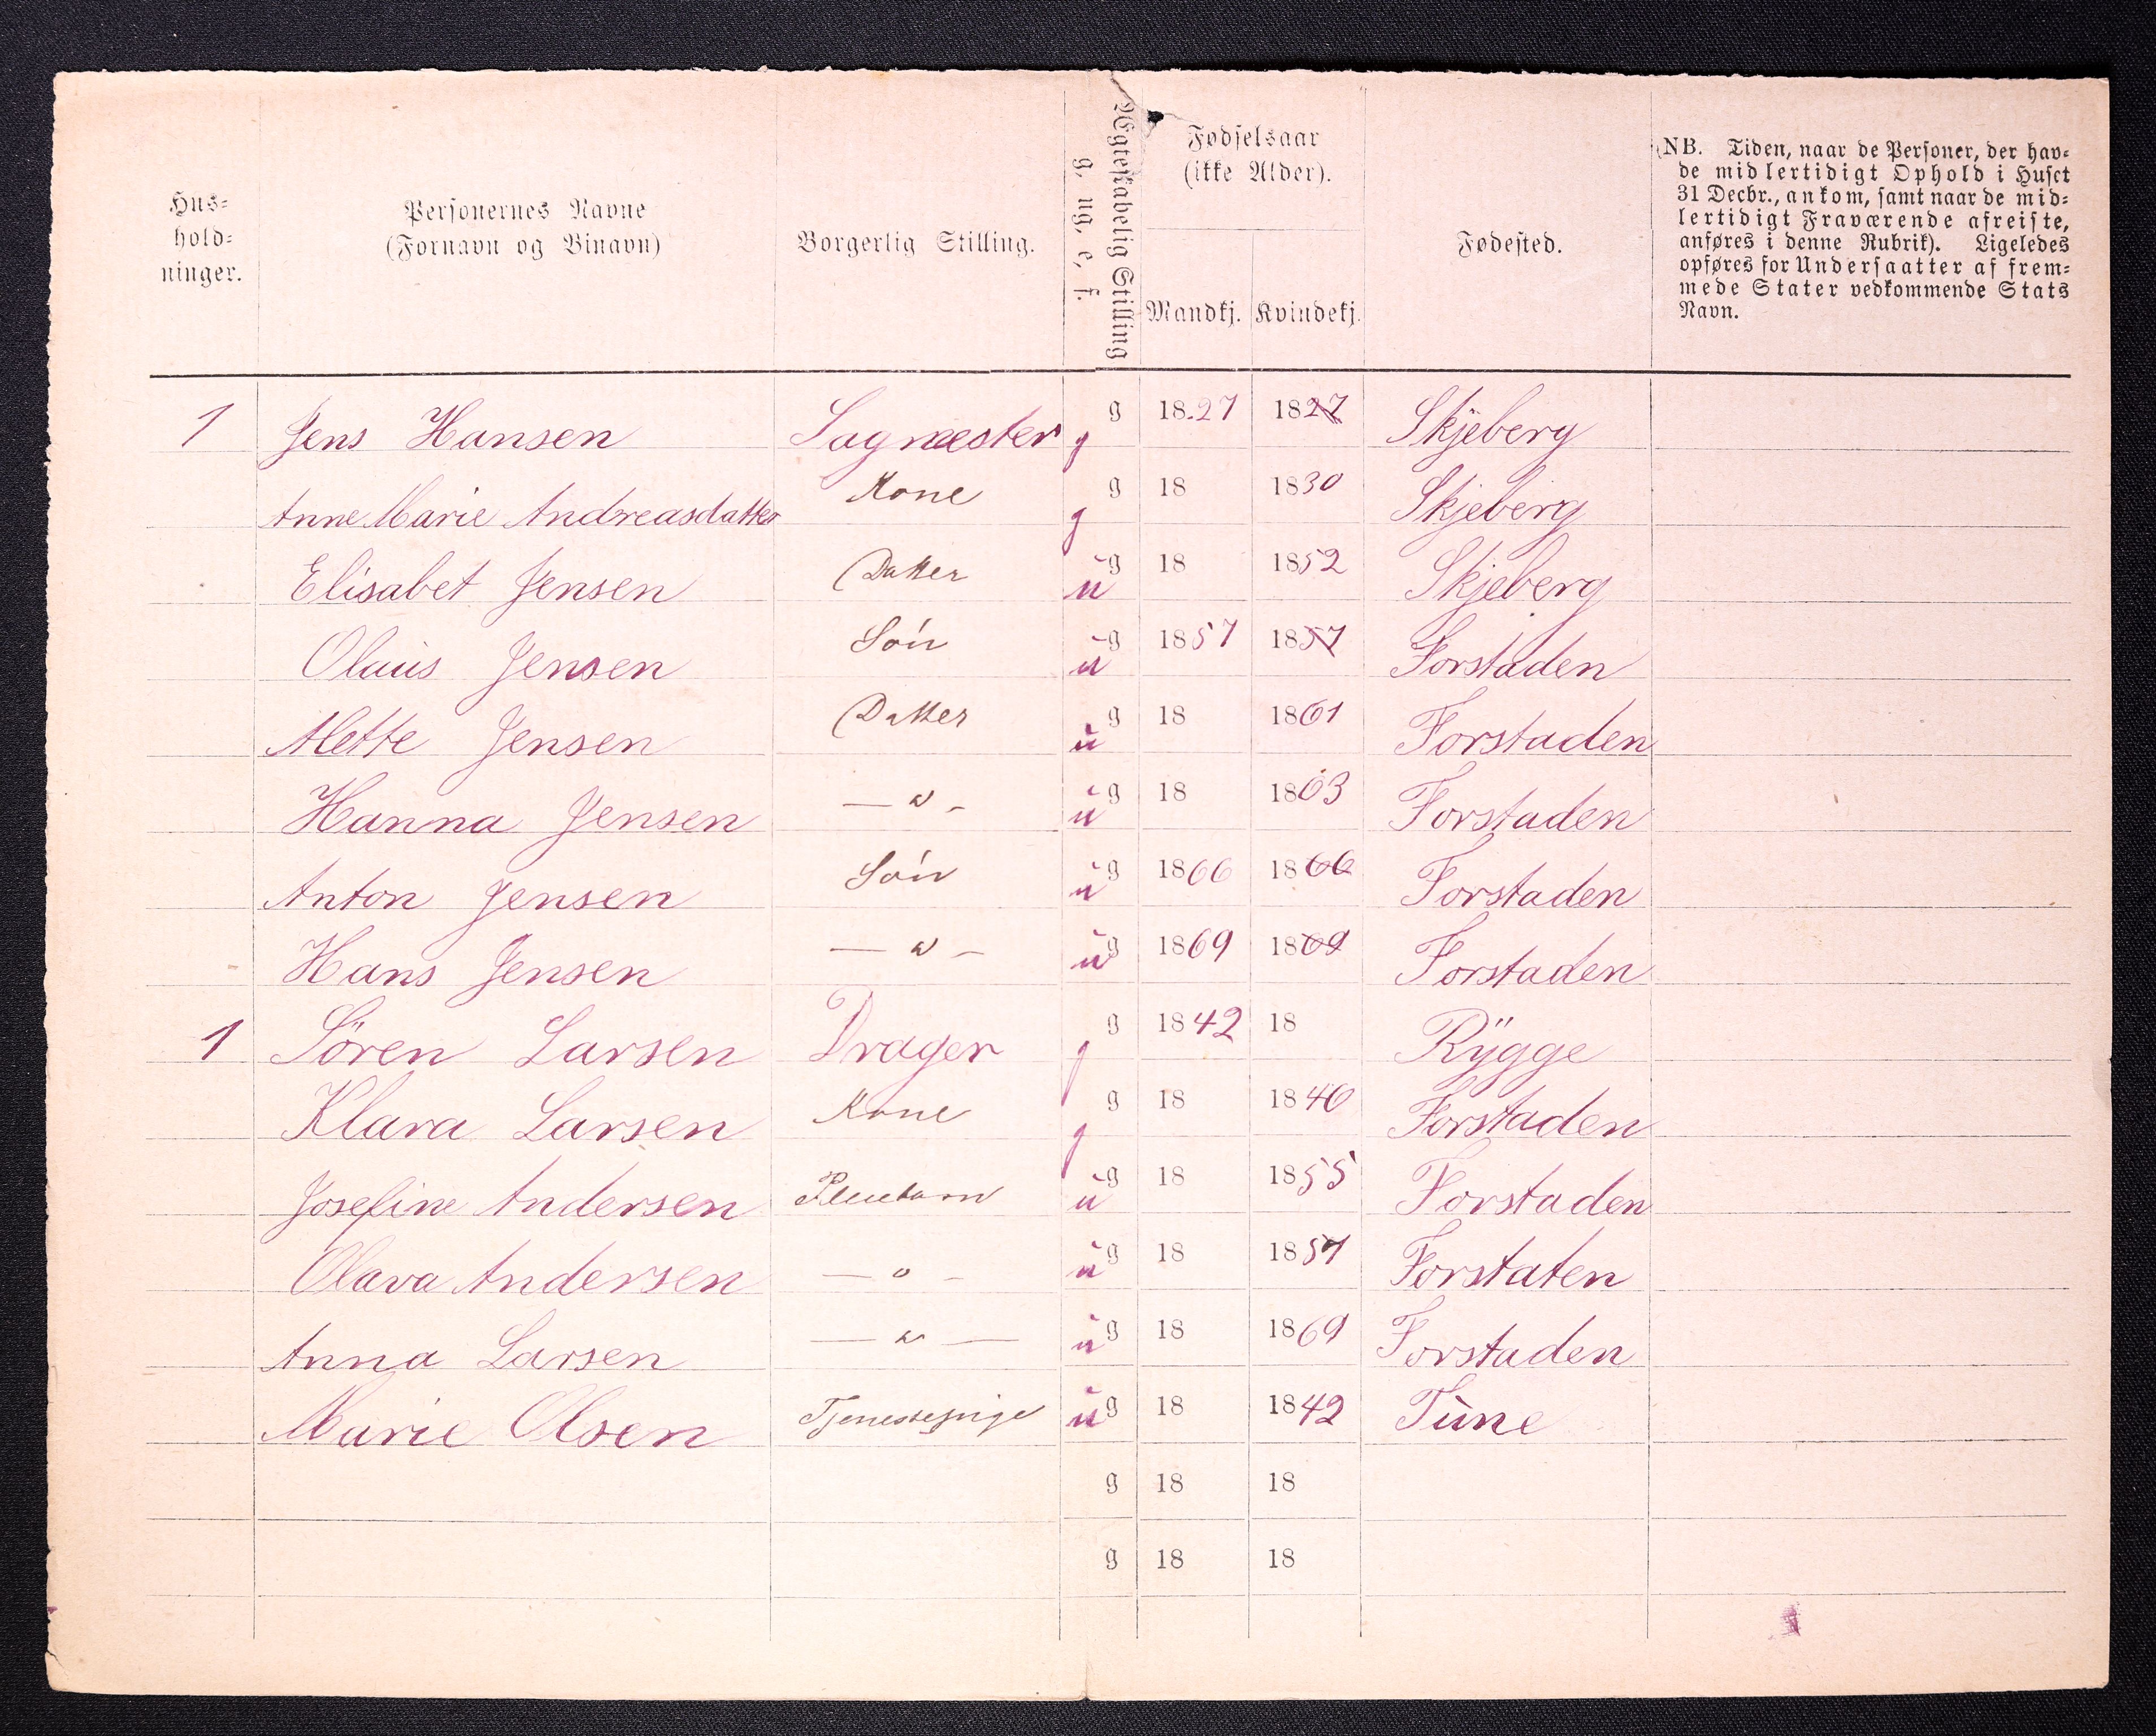 Hus-
hold-
ninger.
Personernes Navne
(Fornavn og Binavn)
Borgerlig Stilling.
Ægteskabelig Stilling
g. ug. e. f.
Fødselsaar
(ikke Alder).
Mandkj. Kvindekj.
Fødested.
(NB. Tiden, naar de Personer, der hav-
de midlertidigt Ophold i Huset
31 Decbr., ankom, samt naar de mid-
lertidigt Fraværende afreiste,
anføres i denne Rubrik). Ligeledes
opføres for Undersaatter af frem-
mede Stater vedkommende Stats
Navn.
1 Jens Hansen Sagmester g g 18.27 1827 Skjeberg
Anne Marie Andreasdatter Kone g g 18 1830 Skjeberg
Elisabet Jensen Datter u g 18 1852 Skjeberg
Olaus Jensen Sön u g 1857 1857 Forstaden
Mette Jensen Datter u g 18 1861 Forstaden
Hanna Jensen — " - u g 18 1863 Forstaden
Anton Jensen Sön u g 1866 1866 Forstaden
Hans Jensen — " - u g 1869 1869 Forstaden
1 Sören Larsen Drager g g 1842 18 Rygge
Klara Larsen Kone g g 18 1846 Forstaden
Josefine Andersen u g 18 1855 Forstaden
Olava Andersen — " - u g 18 1857 Forstaten
Anna Larsen — " — u g 18 1869 Forstaden
Marie Olsen Tjenestepige u g 18 1842 Tune
g 18 18
g 18 18